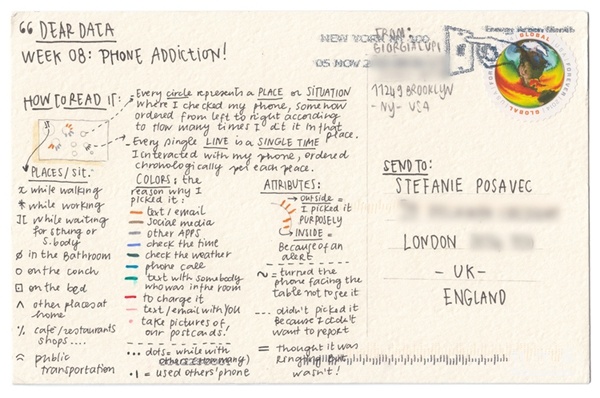 “ DEAR DATA
WEEK 08: PHONE ADDICTION!
HOW TO READ IT:
Every circle represents a PLACE or SITUATION
where I checked my phone, somehow
ordered from left to right according
to how many times I did it in that
place.
Every single LINE is a SINGLE TIME
I interacted with my phone, ordered
chronologically per each place.
PLACES/SIT.
while walking
while working
while waiting
for sthung or
s.body
in the bathroom
on the couch
on the bed
other places at
home
cafè/restaurants
shops....
public
transportation
COLORS: the
reason why I
picked it:
text/email
social media
other APPS
check the time
check the weather
phone call
text with somebody
who was in the room
to charge it
text/email with YOU
take pictures of
our postcards!
... dots = while with
others
= used others' phone
ATTRIBUTES:
outside =
I picked it
PURPOSELY
INSIDE =
Because of an
alert
~ = turned the
phone facing the
table not to see it
... didn't picked it
because I didn't
want to report
= thought it was
ringing but
wasn't!
NEW YORK NY 100
05 NOV 2
FROM:
GIORGIA LUPI
11249 BROOKLYN
- NY - USA
GLOBAL
FOREVER
SEND TO:
STEFANIE POSAVEC
LONDON
- UK -
ENGLAND